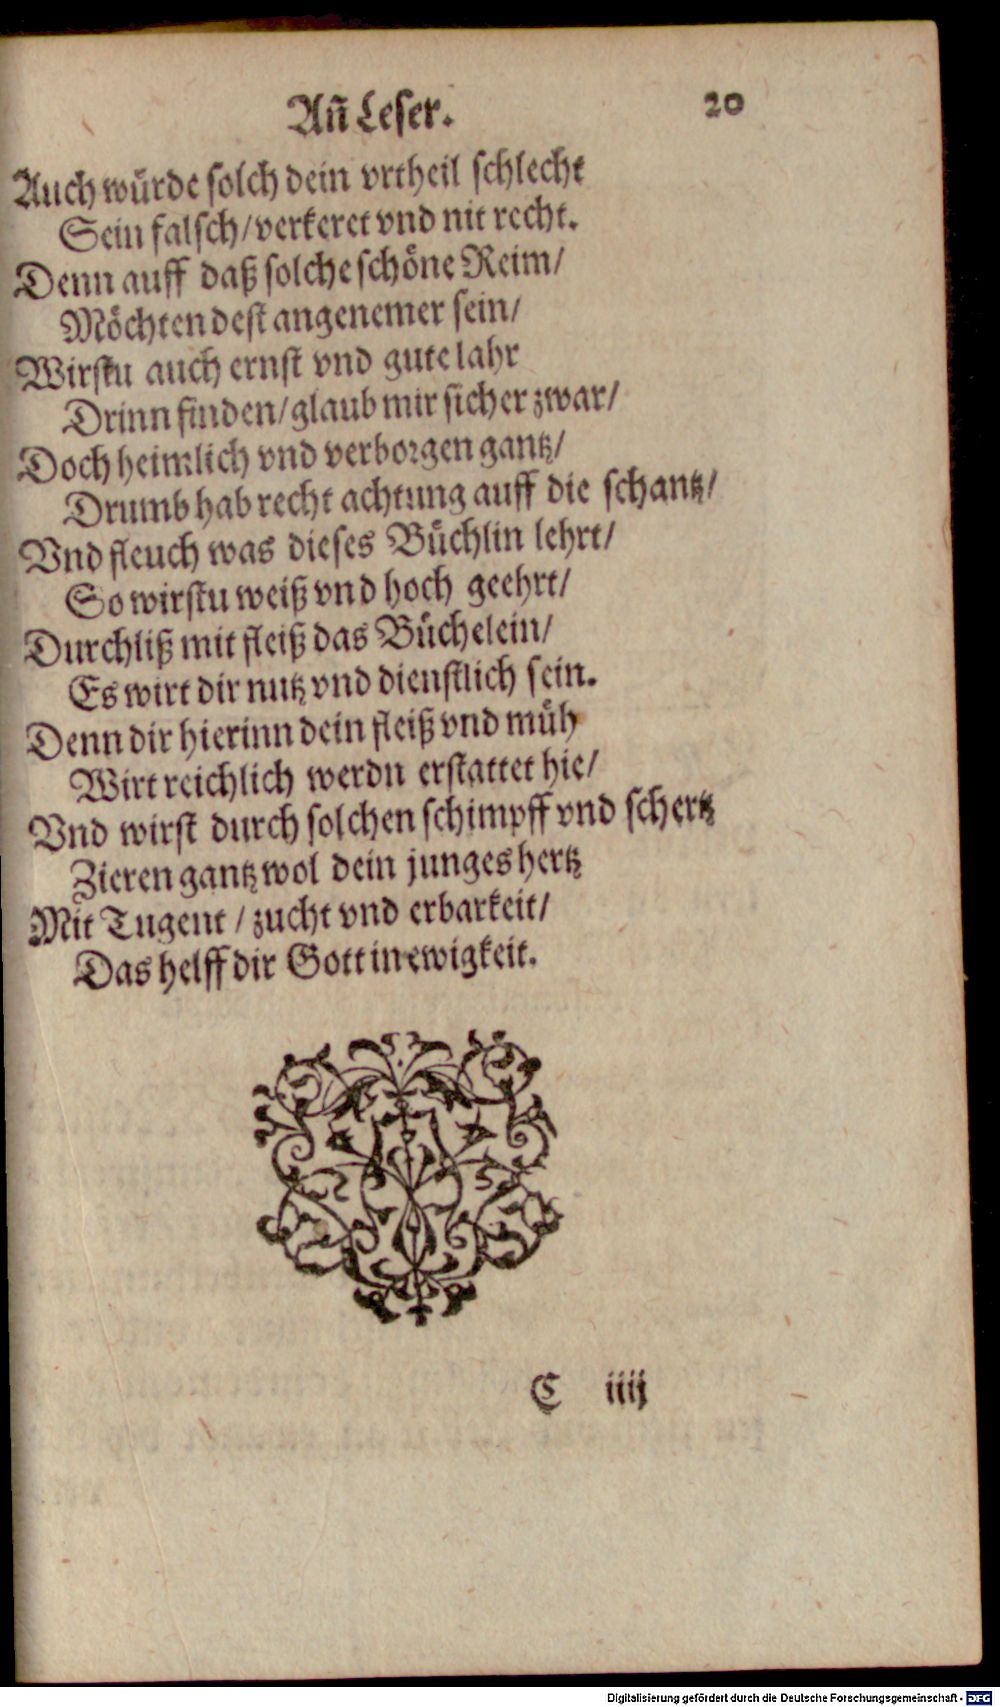 Añ Leser. 20
Auch würde solch dein vrtheil schlecht
Sein falsch/verkeret vnd nit recht.
Denn auff daß solche schöne Reim/
Möchten dest angenemer sein/
Wirstu auch ernst vnd gute lahr
Drinn finden/glaub mir sicher zwar/
Doch heimlich vnd verborgen gantz/
Drumb hab recht achtung auff die schantz/
Vnd fleuch was dieses Büchlin lehrt/
So wirstu weiß vnd hoch geehrt/
Durchliß mit fleiß das Büchelein/
Es wirt dir nutz vnd dienstlich sein.
Denn dir hierinn dein fleiß vnd müh
Wirt reichlich werdn erstattet hie/
Vnd wirst durch solchen schimpff vnd schertz
Zieren gantz wol dein junges hertz
Mit Tugent / zucht vnd erbarkeit/
Das helff dir Gott in ewigkeit.
C iiij
Digitalisierung gefördert durch die Deutsche Forschungsgemeinschaft - DFG